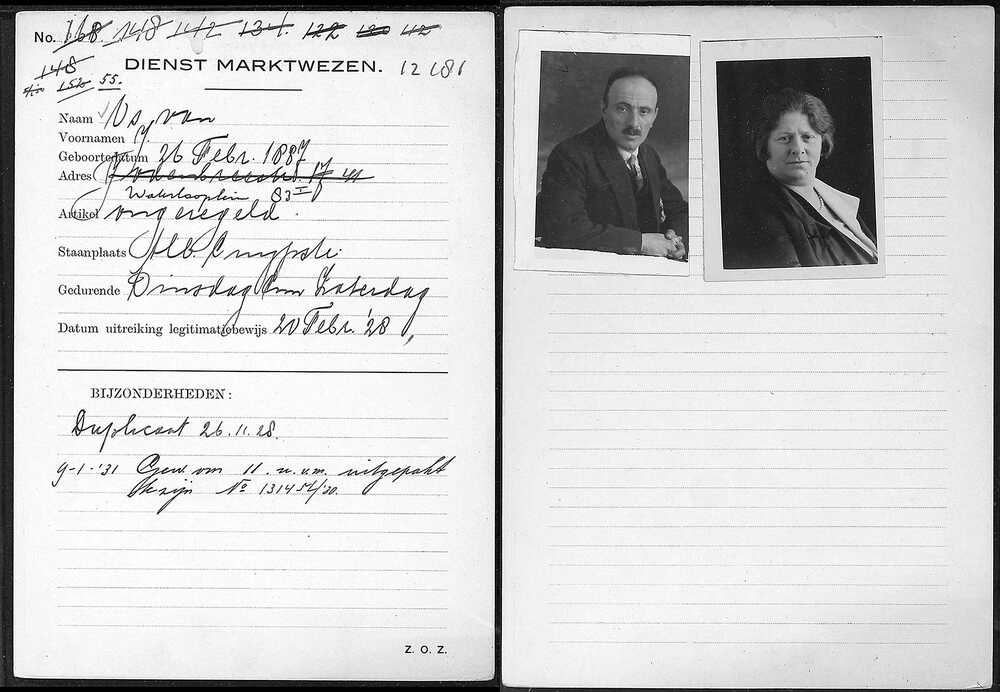 No. 168. 148 142 134. 122 120 112
148
DIENST MARKTWEZEN. 12 181
1520 55.
Naam Os, van
Voornamen J.
Geboortedatum 26 Febr. 1887
Adres 17
Waterlooplein 83 I
Artikel ongeregeld.
Staanplaats Alb. Cuypstr.
Gedurende Dinsdag t/m Zaterdag
Datum uitreiking legitimatiebewijs 20 Febr. '28,
BIJZONDERHEDEN:
Duplicaat 26.11.28.
9-1-'31 Gew. om 11 u. v.m. uitgepakt
N° 1314 /'30.
Z. O. Z.